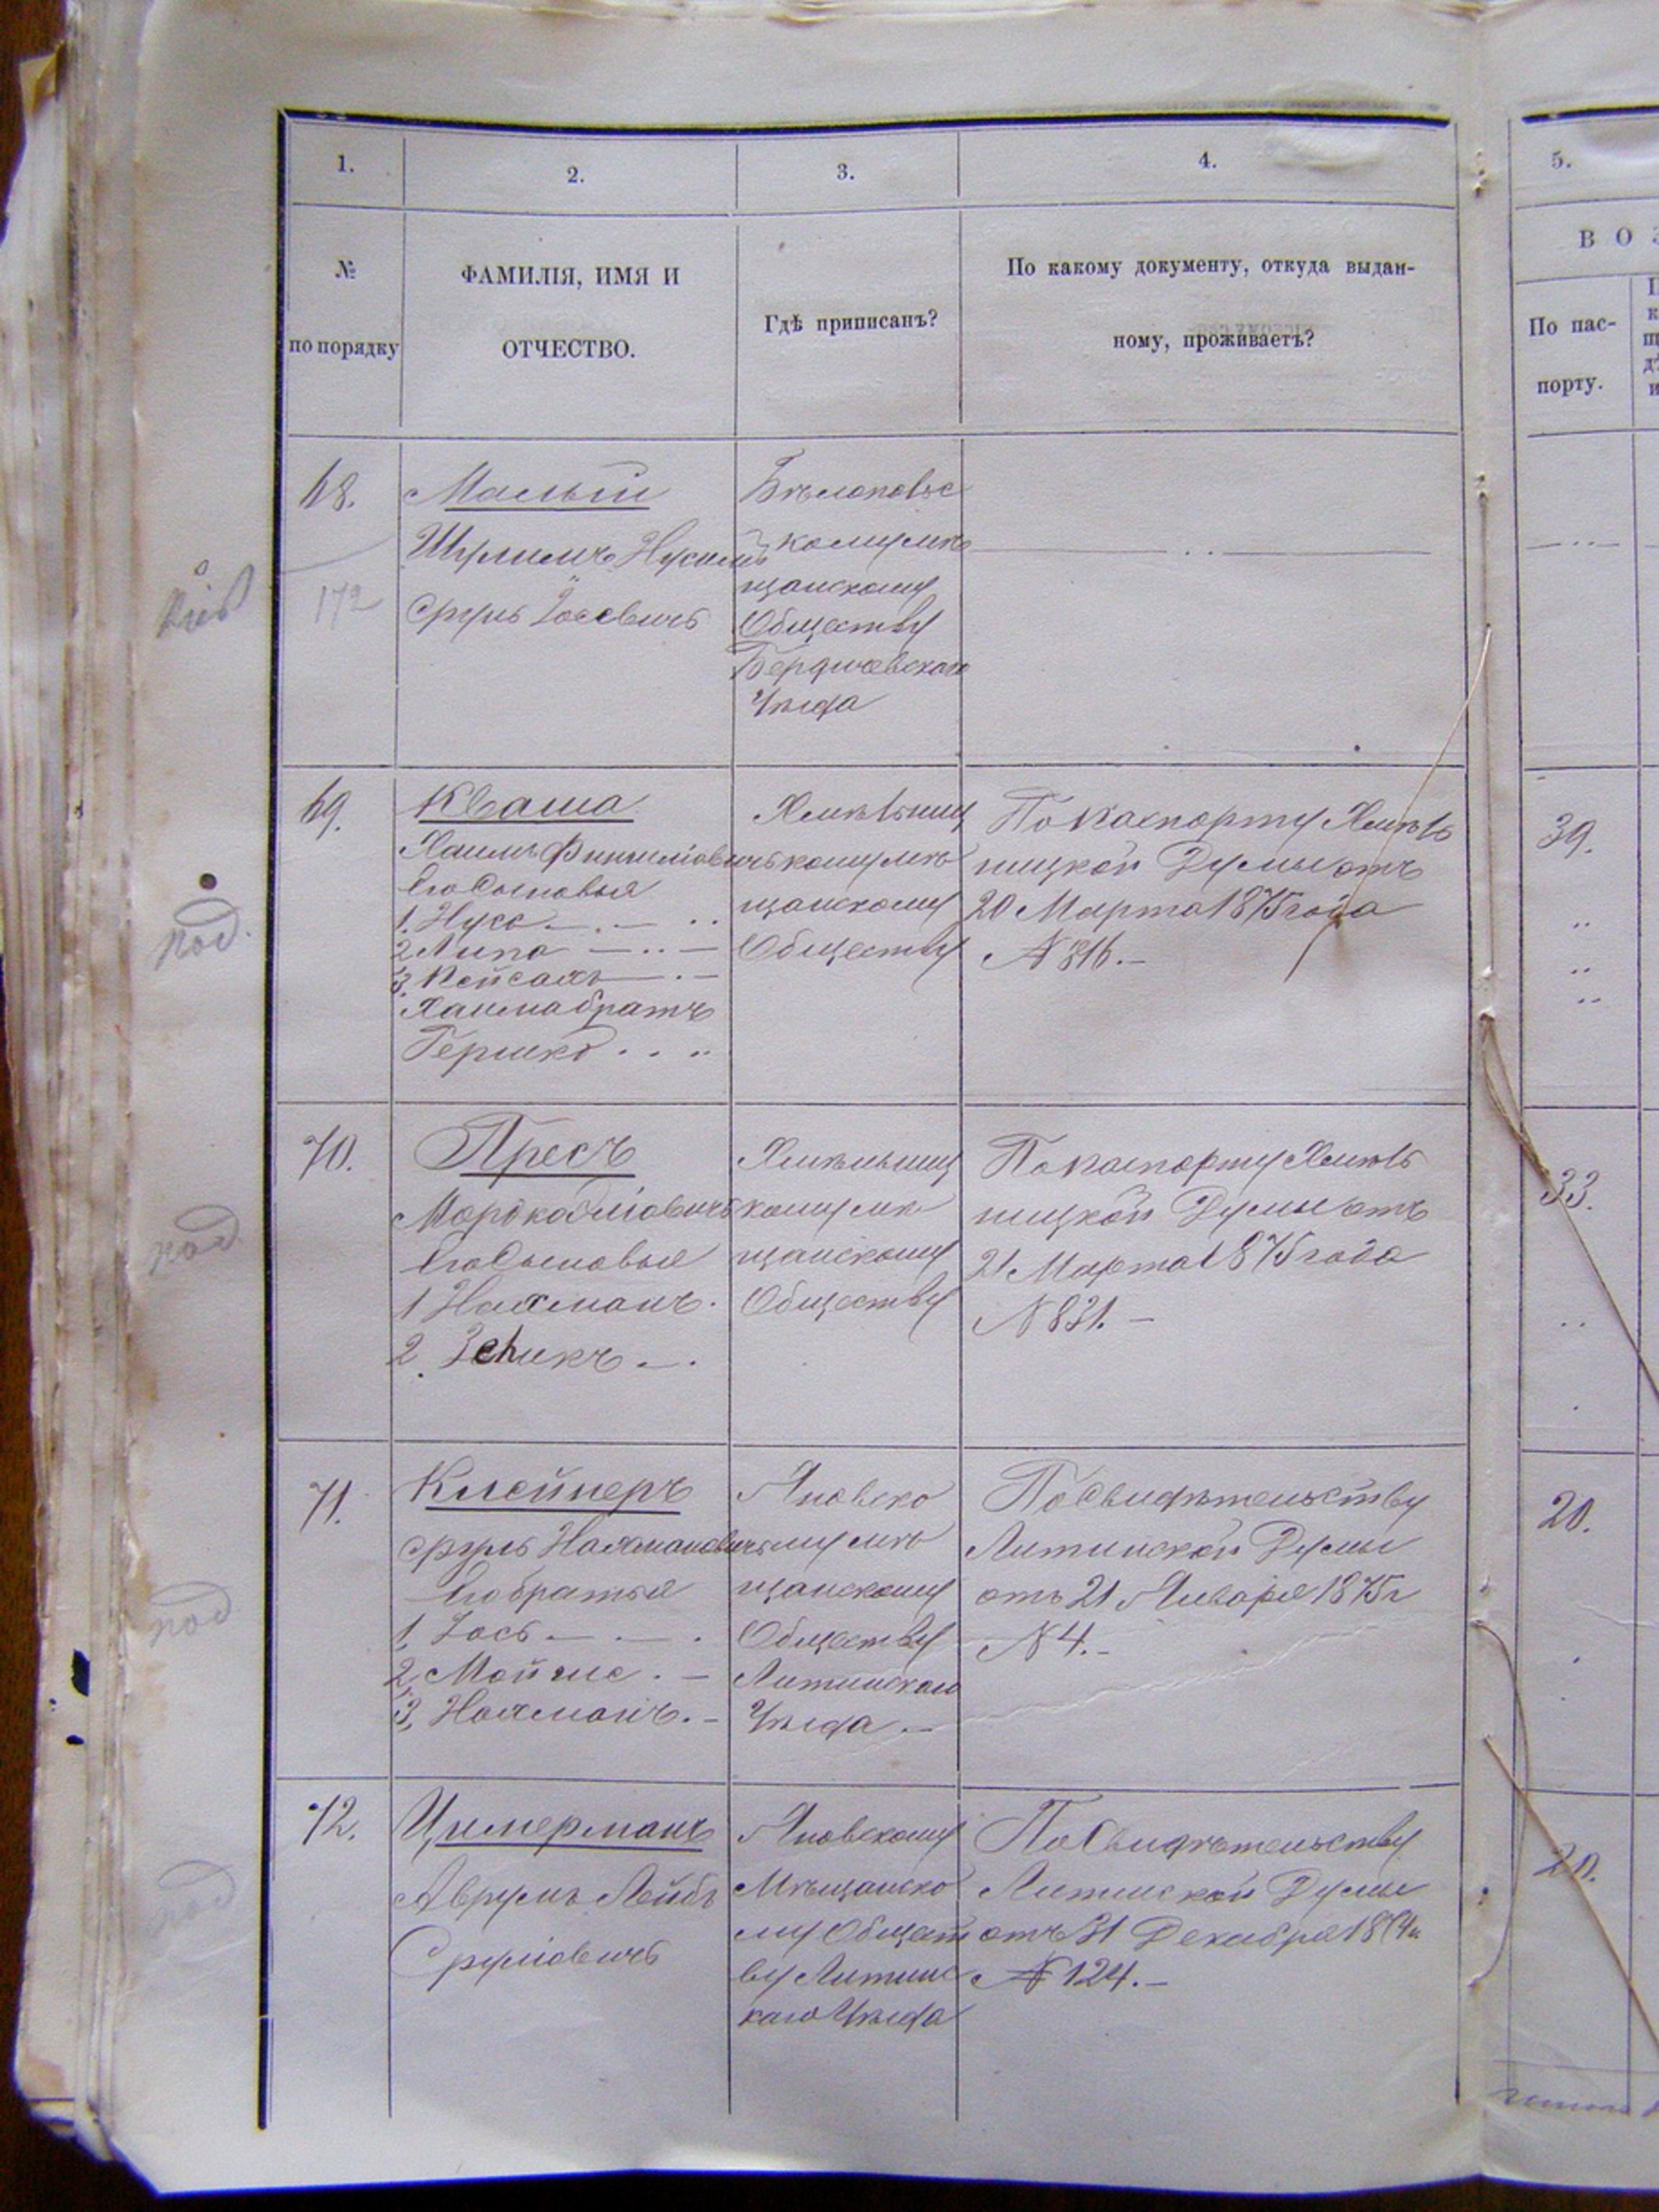 1.
2.
3.
4.
5.
№
по порядку
ФАМИЛІЯ, ИМЯ И
ОТЧЕСТВО.
Гдѣ приписанъ?
По какому документу, откуда выдан-
ному, проживаетъ?
В О З
По пас-
порту.
68.
Малый
Шулимъ Нусимъ
Сруль Іосевичъ
Бѣлоповс
кому мѣ
щанскому
Обществу
Бердичевскаго
Уѣзда
172
Кіев
69.
Кваша
Хаимъ Фишилiовичъ
Его Сыновья
1. Нусс
2 Липа
3. Кейсаль
Хаима братъ
Гершко
Хмѣльниц
кому мѣ
щанскому
Обществу
По Паспорту Хмѣль
ницкой Думы отъ
20 Марта 1875 года
N 816.-
39.
под.
70.
Пресъ
Мордко Элiовичъ
Его Сыновья
1 Нахманъ.
2.
Хмѣльниц
кому мѣ
щанскому
Обществу
По паспорту Хмѣль
ницкой Думы отъ
21 Марта 1875 года
N 831.-
33.
под
71.
Клейнеръ
Сруль Нахмановичъ
Его братья
1, Іось
2, Мойше
3, Нахманъ.
Яновско
му мѣ
щанскому
Обществу
Литинскаго
Уѣзда.-
По Свидѣтельству
Литинской Думы
отъ 21 Января 1875 г
N 4.-
20.
под
72.
Цимерманъ
Аврумъ Лейбъ
Срулiовичъ
Яновскому
Мѣщанско
му Общест
ву Литинс
каго Уѣзда
По Свидѣтельству
Литинской Думы
отъ 31 Декабря 1874 г.
N 124.-
20.
под